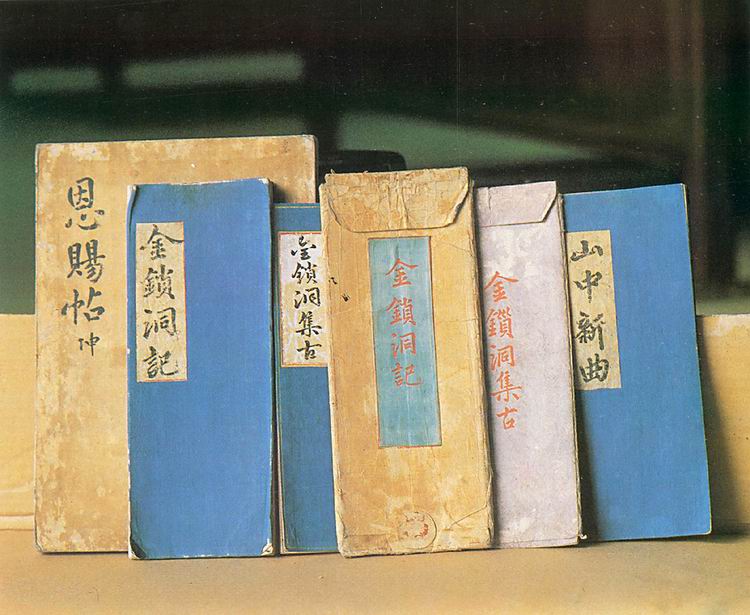 恩賜帖
冲
金鎖洞記
金鎖洞集古
金鎖洞記
金鎖洞集古
山中新曲